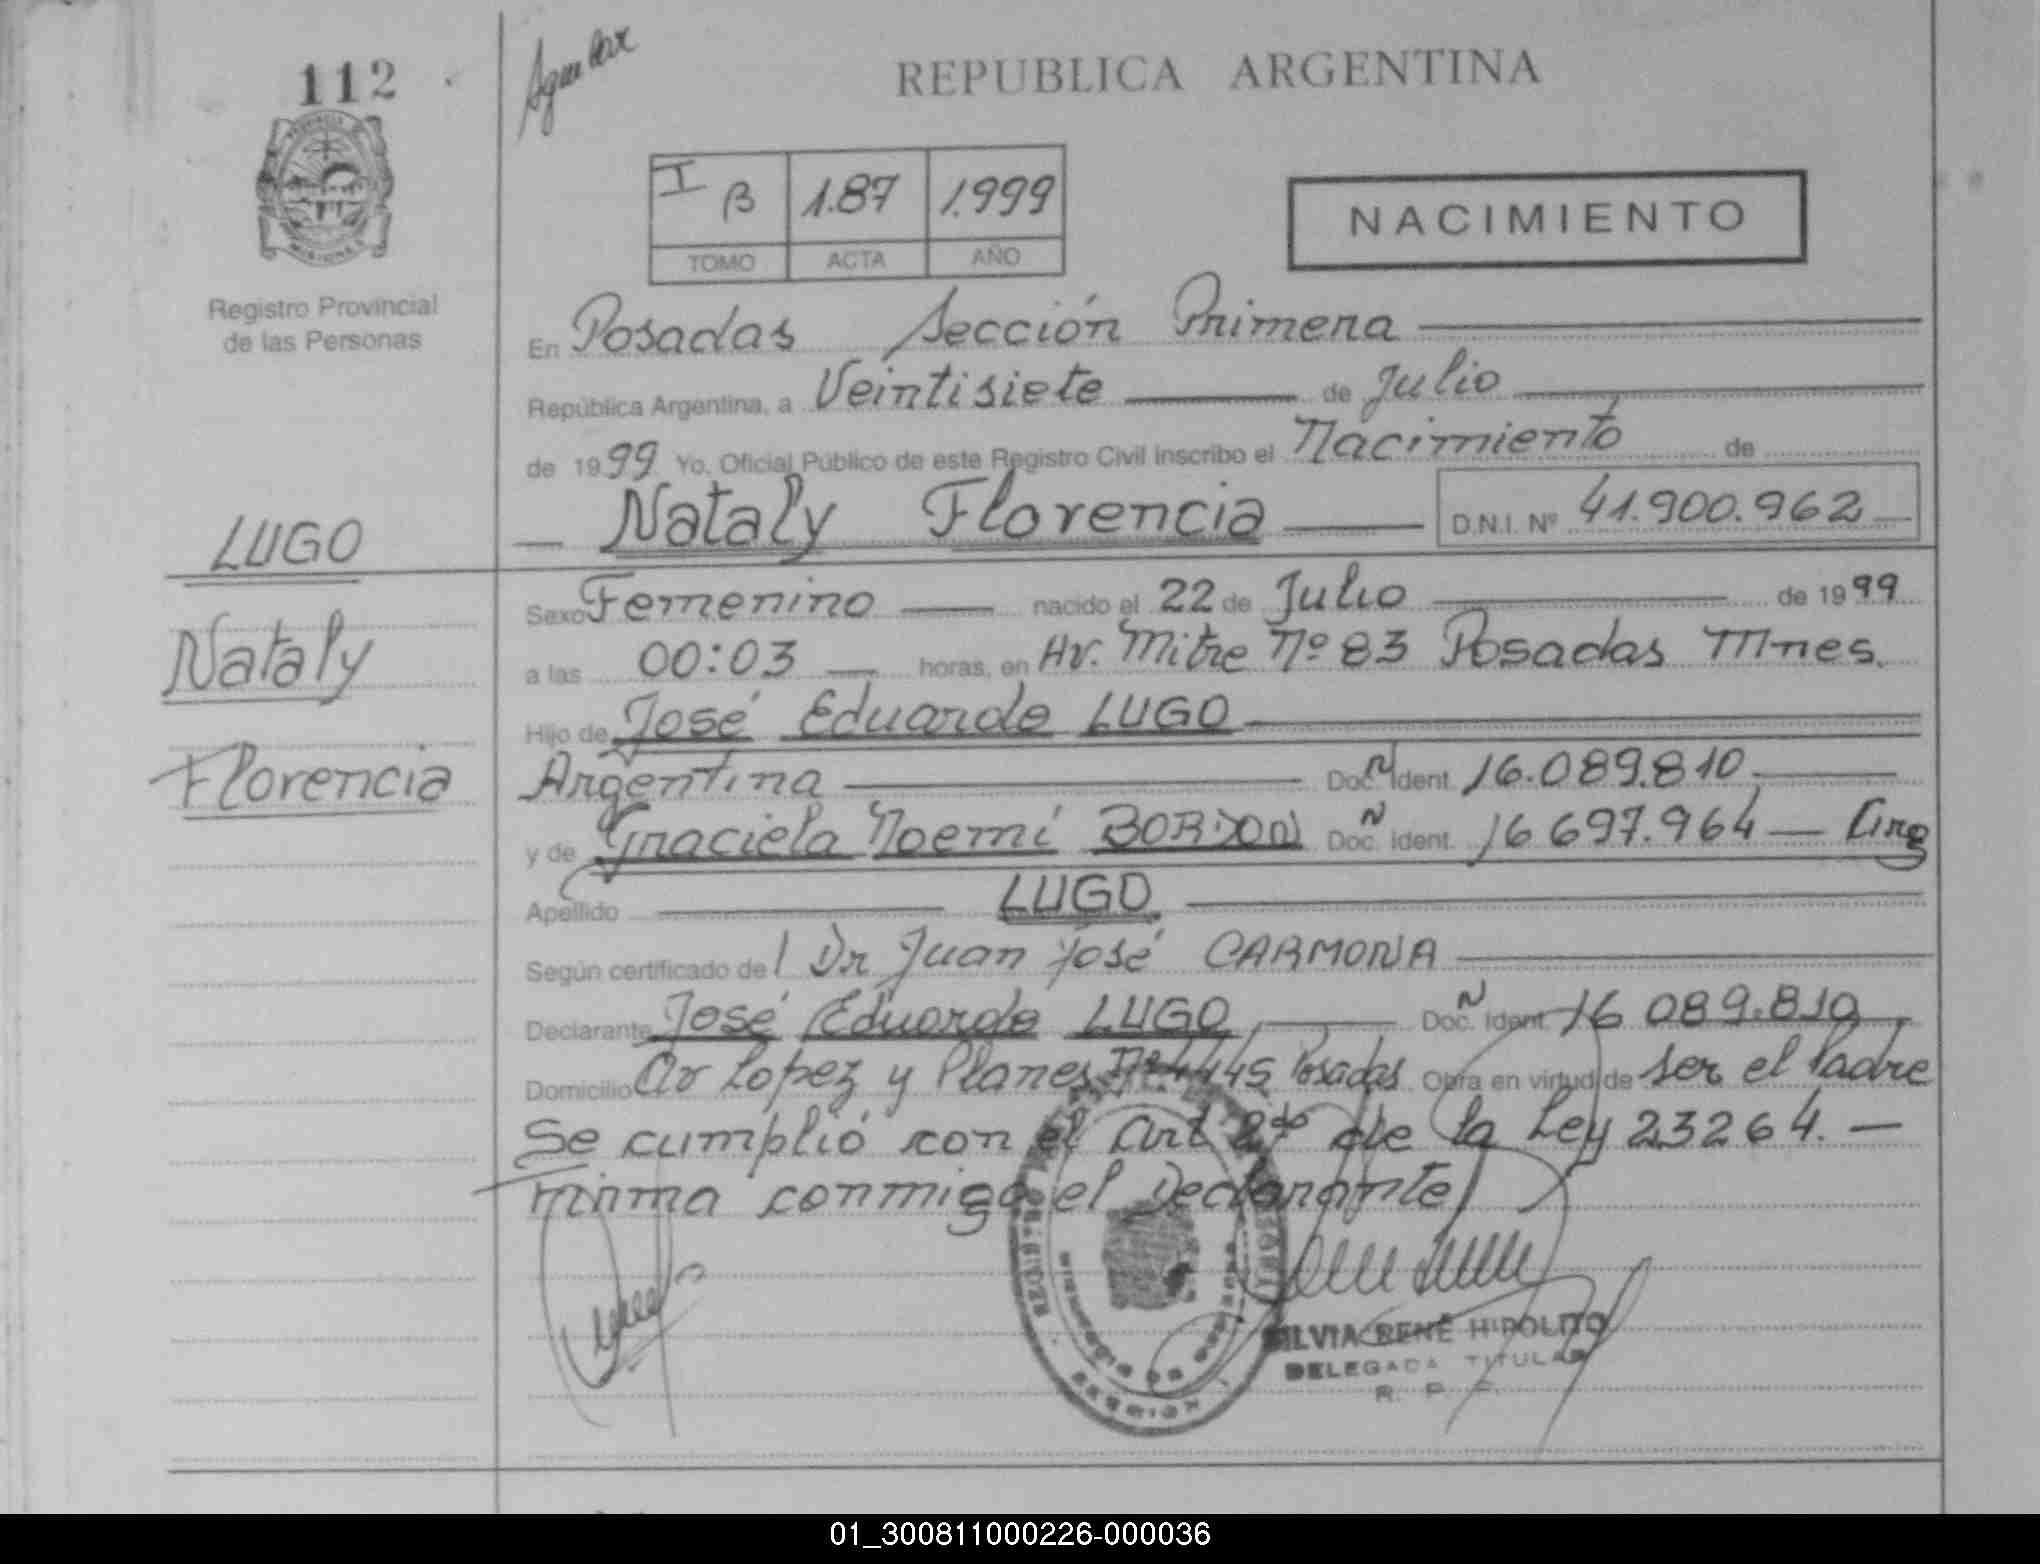 112
Aguilar
REPUBLICA ARGENTINA
I B 1.87 1.999
TOMO ACTA AÑO
NACIMIENTO
Registro Provincial
de las Personas
En Posadas Sección Primera
República Argentina, a Veintisiete de Julio
de 1999 Yo, Oficial Público de este Registro Civil inscribo el Nacimiento de
Nataly Florencia D.N.I. Nº 41.900.962
LUGO
Nataly
Florencia
Sexo Femenino nacido el 22 de Julio de 1999
a las 00:03 horas, en Av. Mitre Nº 83 Posadas Mnes.
Hijo de José Eduardo LUGO
Argentina Doc. N Ident. 16.089.810
y de Graciela Noemí BORDON Doc. N Ident. 16 697.964 Arg
Apellido LUGO
Según certificado de l Dr Juan José CARMONA
Declarante José Eduardo LUGO Doc. N Ident. 16 089.810
Domicilio Av Lopez y Planes Nº 4445 Posadas Obra en virtud de ser el Padre
Se cumplió con el Art 2do de la Ley 23264.
Firma conmigo el Declarante
SILVIA RENÉ HIPOLITO
DELEGADA TITULAR
R. P. P.
01_300811000226-000036